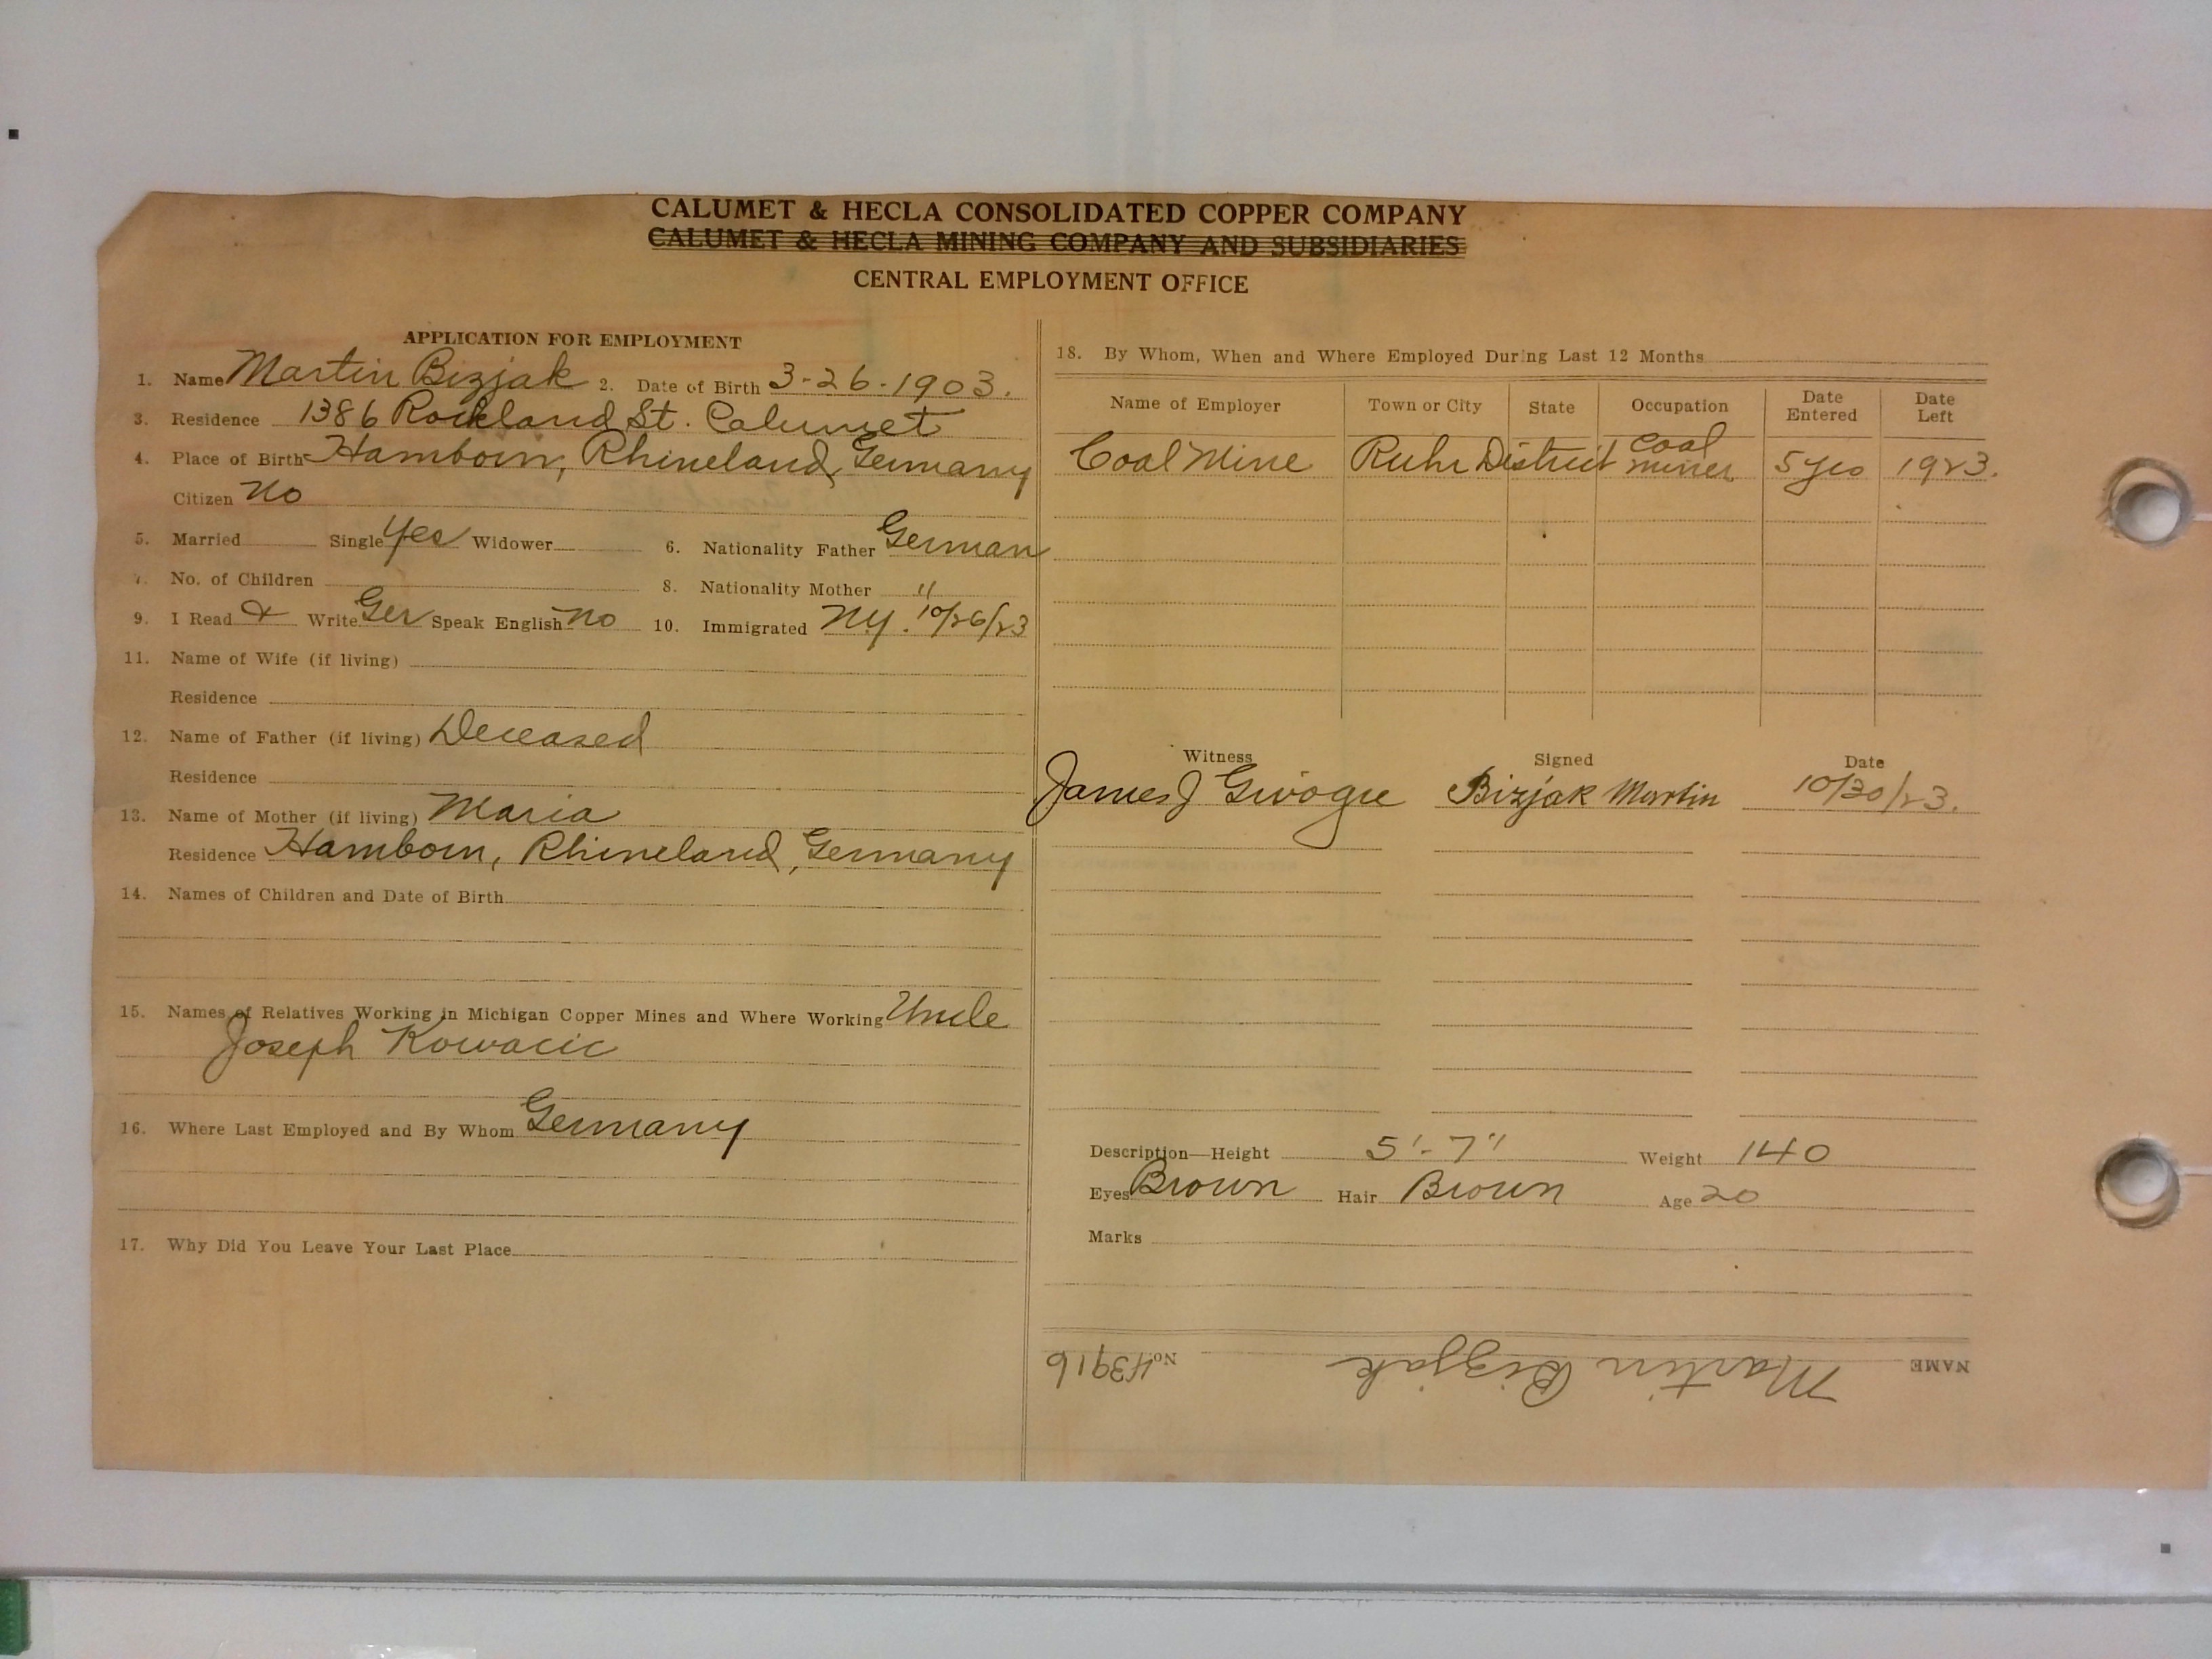 CALUMET & HECLA CONSOLIDATED COPPER COMPANY
CALUMET & HECLA MINING COMPANY AND SUBSIDIARIES
CENTRAL EMPLOYMENT OFFICE
APPLICATION FOR EMPLOYMENT
1. Name Martin Bizjak 2. Date of Birth 3-26-1903.
3. Residence 1386 Rockland St. Calumet
4. Place of Birth Hamborn, Rhineland, Germany
Citizen No
5. Married Single Yes Widower 6. Nationality Father German
7. No. of Children 8. Nationality Mother "
9. I Read & Write Ger Speak English No 10. Immigrated N.Y. 10/26/23
11. Name of Wife (if living)
Residence
12. Name of Father (if living) Deceased
Residence
13. Name of Mother (if living) Maria
Residence Hamborn, Rhineland, Germany
14. Names of Children and Date of Birth
15. Names of Relatives Working in Michigan Copper Mines and Where Working Uncle
Joseph Kowacic
16. Where Last Employed and By Whom Germany
17. Why Did You Leave Your Last Place
18. By Whom, When and Where Employed During Last 12 Months
Name of Employer Town or City State Occupation Date Entered Date Left
Coal Mine Ruhr District Coal miner 5 yrs 1923.
Witness Signed Date
James J Bizjak Martin 10/30/23.
Description—Height 5'-7" Weight 140
Eyes Brown Hair Brown Age 20
Marks
NAME Martin Bizjak No. 43916